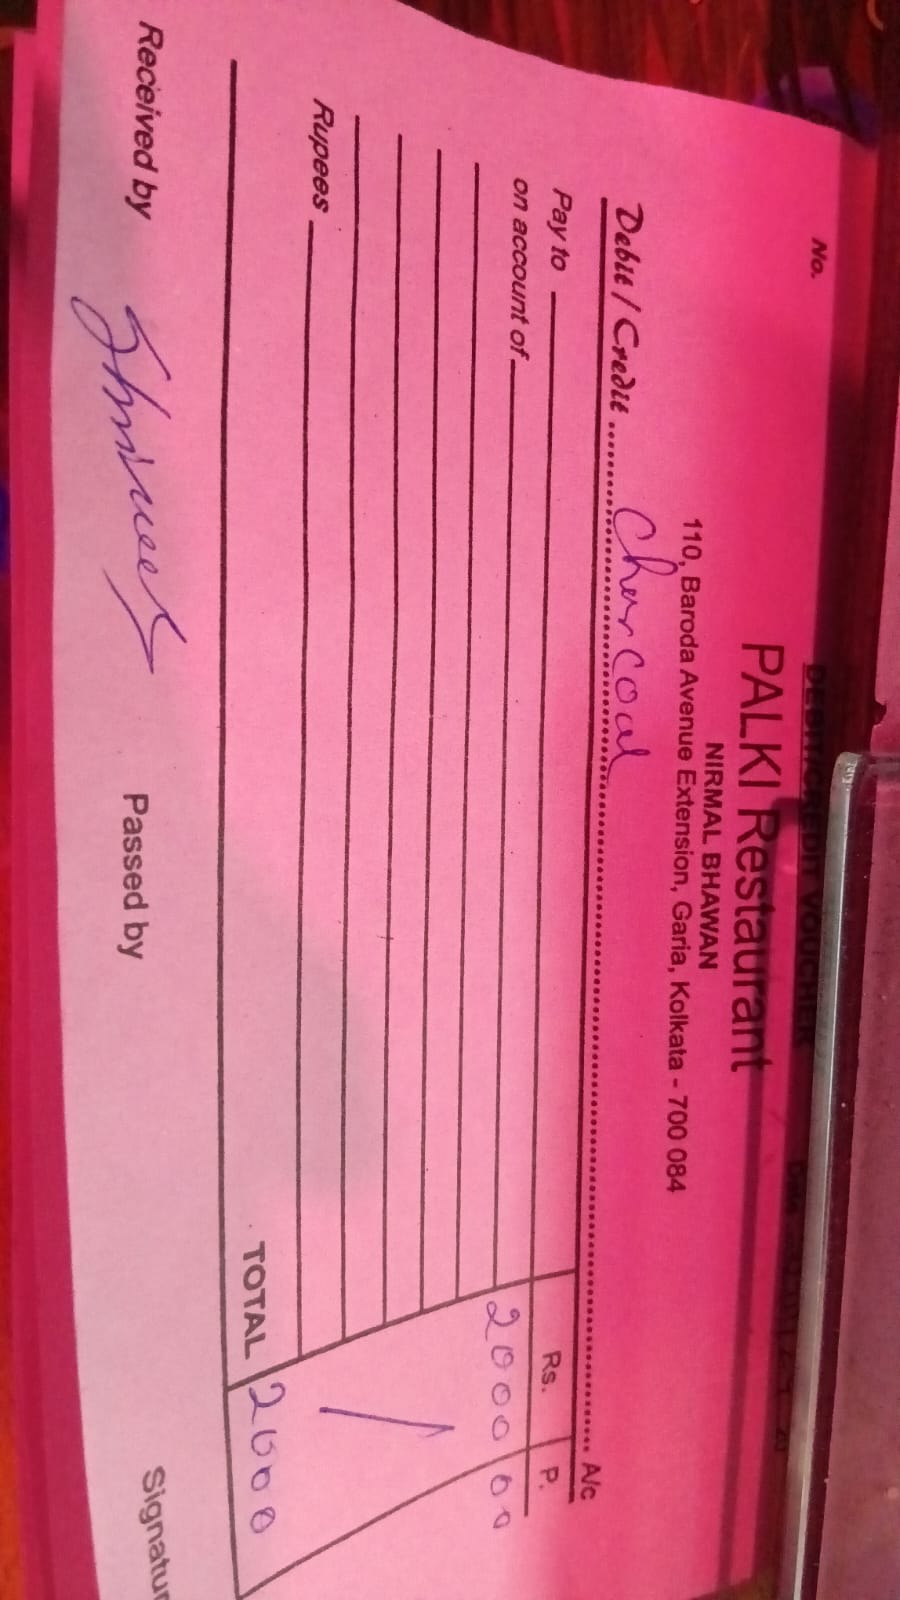 DEBIT/CREDIT VOUCHER
No.
PALKI Restaurant
NIRMAL BHAWAN
110, Baroda Avenue Extension, Garia, Kolkata - 700 084
Debit / Credit ..... Charcoal ..... A/c
Pay to Rs. P.
on account of 2000 00
Rupees
TOTAL 2000
Received by Passed by Signatur